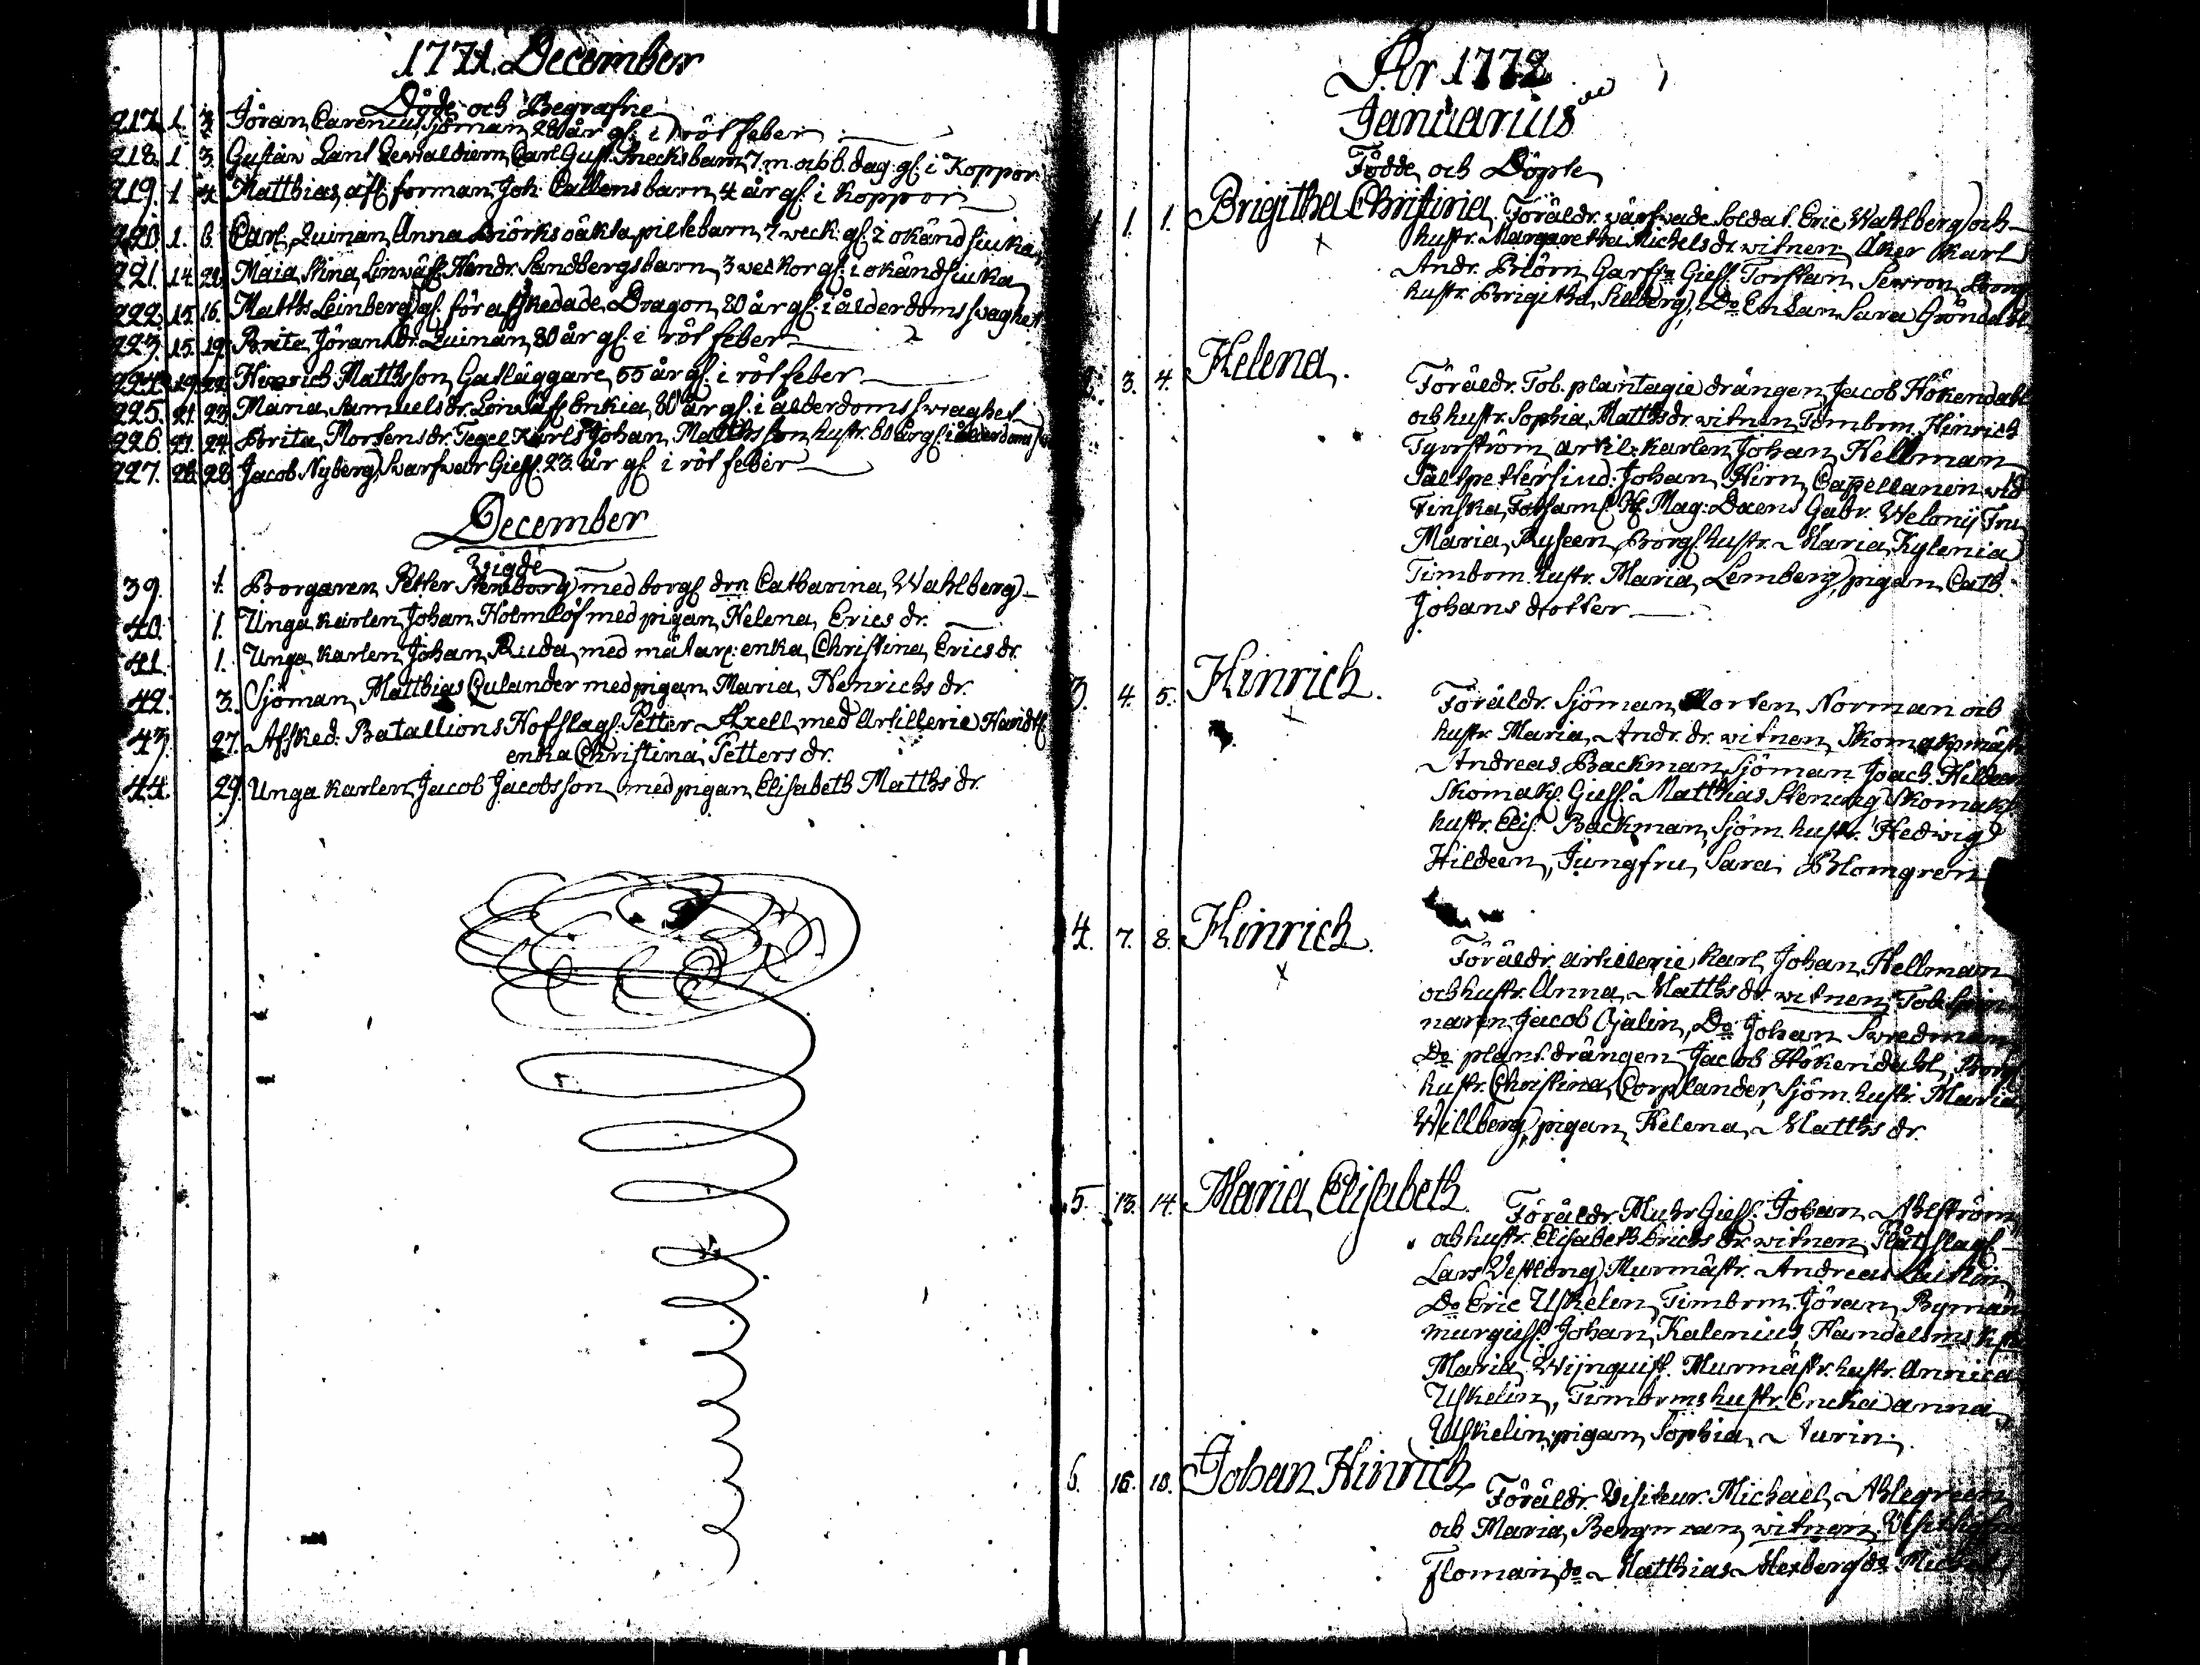 1771. December
Döde och Begrafne
217. 1. 3. Jöran Carenius, Sjöman, 28 år gl. i rötfeber
218. 1. 3. Gustav Lanl Carl Gust. barn, 7 m. och 6. dag. gl. i Koppor
219. 1. 4. Matthias, afl. forman Joh. Callens barn, 4 år gl. i koppor
220. 1. 6. Carl, Quinan Anna Biörks oäkta piltebarn, 7 weck. gl. i okänd siuka
221. 14. 28. Maia Stina, Linwäf. Hendr. Sandbergs barn, 3 veckor gl. i okänd siuka
222. 15. 16. Matths Leinberg gl. för afskedade Dragon, 80 år gl. i ålderdoms swaghet
223. 15. 19. Brita Jörans dr. Quinan, 80 år gl. i rötfeber
224. 19. 22. Hinrich Matthsson Gatläggare, 55 år gl. i rötfeber
225. 21. 23. Maria Samuels dr. Linwäf. Enkia, 80 år gl. i ålderdoms swaghet
226. 21. 24. Brita Mortens dr. Tegel Karls Johan Matthssons hustr. 60 år gl. i ålderdoms
227. 26. 28. Jacob Nyberg, Swarfwar Giess. 23 år gl. i rötfeber
December
Vigde
39. 1. Borgaren Petter Stenborg med borgs. drn Catharina Wahlberg
40. 1. Unga karlen Johan Holmlöf med pigan Helena Erics dr.
41. 1. Unga karlen Johan Ruda, med målar: enka Christina Erics dr.
42. 3. Sjöman Matthias Culander med pigan Maria Henrichs dr.
43. 27. Afsked: Batallions Hofslag: Petter Axell med Artillerie Handtl.
enka Christina Petters dr.
44. 29. Unga karlen Jacob Jacobsson med pigan Elisabeth Matths dr.
År 1772
Januarius
Födde och Döpte
1. 1. Brigitha Christina Föräldr. wärfwade Soldat. Eric Wahlberg och
hustr. Margaretha Michels dr witnen Åker Karl
Andr. Biörn, Garf. Giess. Torstan
hustr. Brigitha, Do Enkan Sara Gröndahl
3. 4. Helena. Föräldr. Tob. plantagie drängen Jacob Hökendahl
och hustr. Sophia Matths dr. witnen Timbrm. Hinrich
Tyrström artil: karlen Johan Hellman
Saltpetter siud: Johan Hirn, Capellanen wid
Finska Förs. Mag: Gabr. Welonij Fru
Maria Ryseen, Borgs. hustr. Maria Kylenia
Timbrm. hustr. Maria Lemberg, pigan Cath.
Johans dotter
3. 4. 5. Hinrich. Föräldr. Sjöman Morten Norman och
hustr. Maria Andr. dr. witnen Skomakmästr.
Andreas Backman, Sjöman Joach. Hildeen
Skomak. Giess. Matthias Skomak.
hustr. Elis. Backman, Sjöm. hustr. Hedwig
Hildeen, Jungfru Sara Blomgren
4. 7. 8. Hinrich. Föräldr. artillerie karl Johan Hellman
och hustr. Anna Matths dr. witnen Tob. Spin-
naren Jacob Ojalin, Do Johan Swedman
Do plant. drängen Jacob Hökendahl, Borg.
hustr. Christina Corplander, Sjöm. hustr. Maria
Willberg, pigan Helena Matths dr.
5. 13. 14. Maria Elisabeth. Föräldr. Muhr Giess. Johan Ahlström
och hustr. Elisabeth Erichs dr. witnen Plåtslag.
Lars Vestlöng, Murmästr. Andreas
Do Eric Uskelin, Timbrm. Jöran Ryman
murgiess. Johan Kalenius, Handelsms hstr.
Maria Wijnquist. Murmästr. hustr. Annica
Uskelin, Timbrms hustr. Encka anna
Uskelin, pigan Sophia Turin.
6. 16. 18. Johan Hinrich Föräldr. Visiteur. Michael Ahlegreen
och Maria Bergman, witnen
Floman, do Matthias Alexberg do